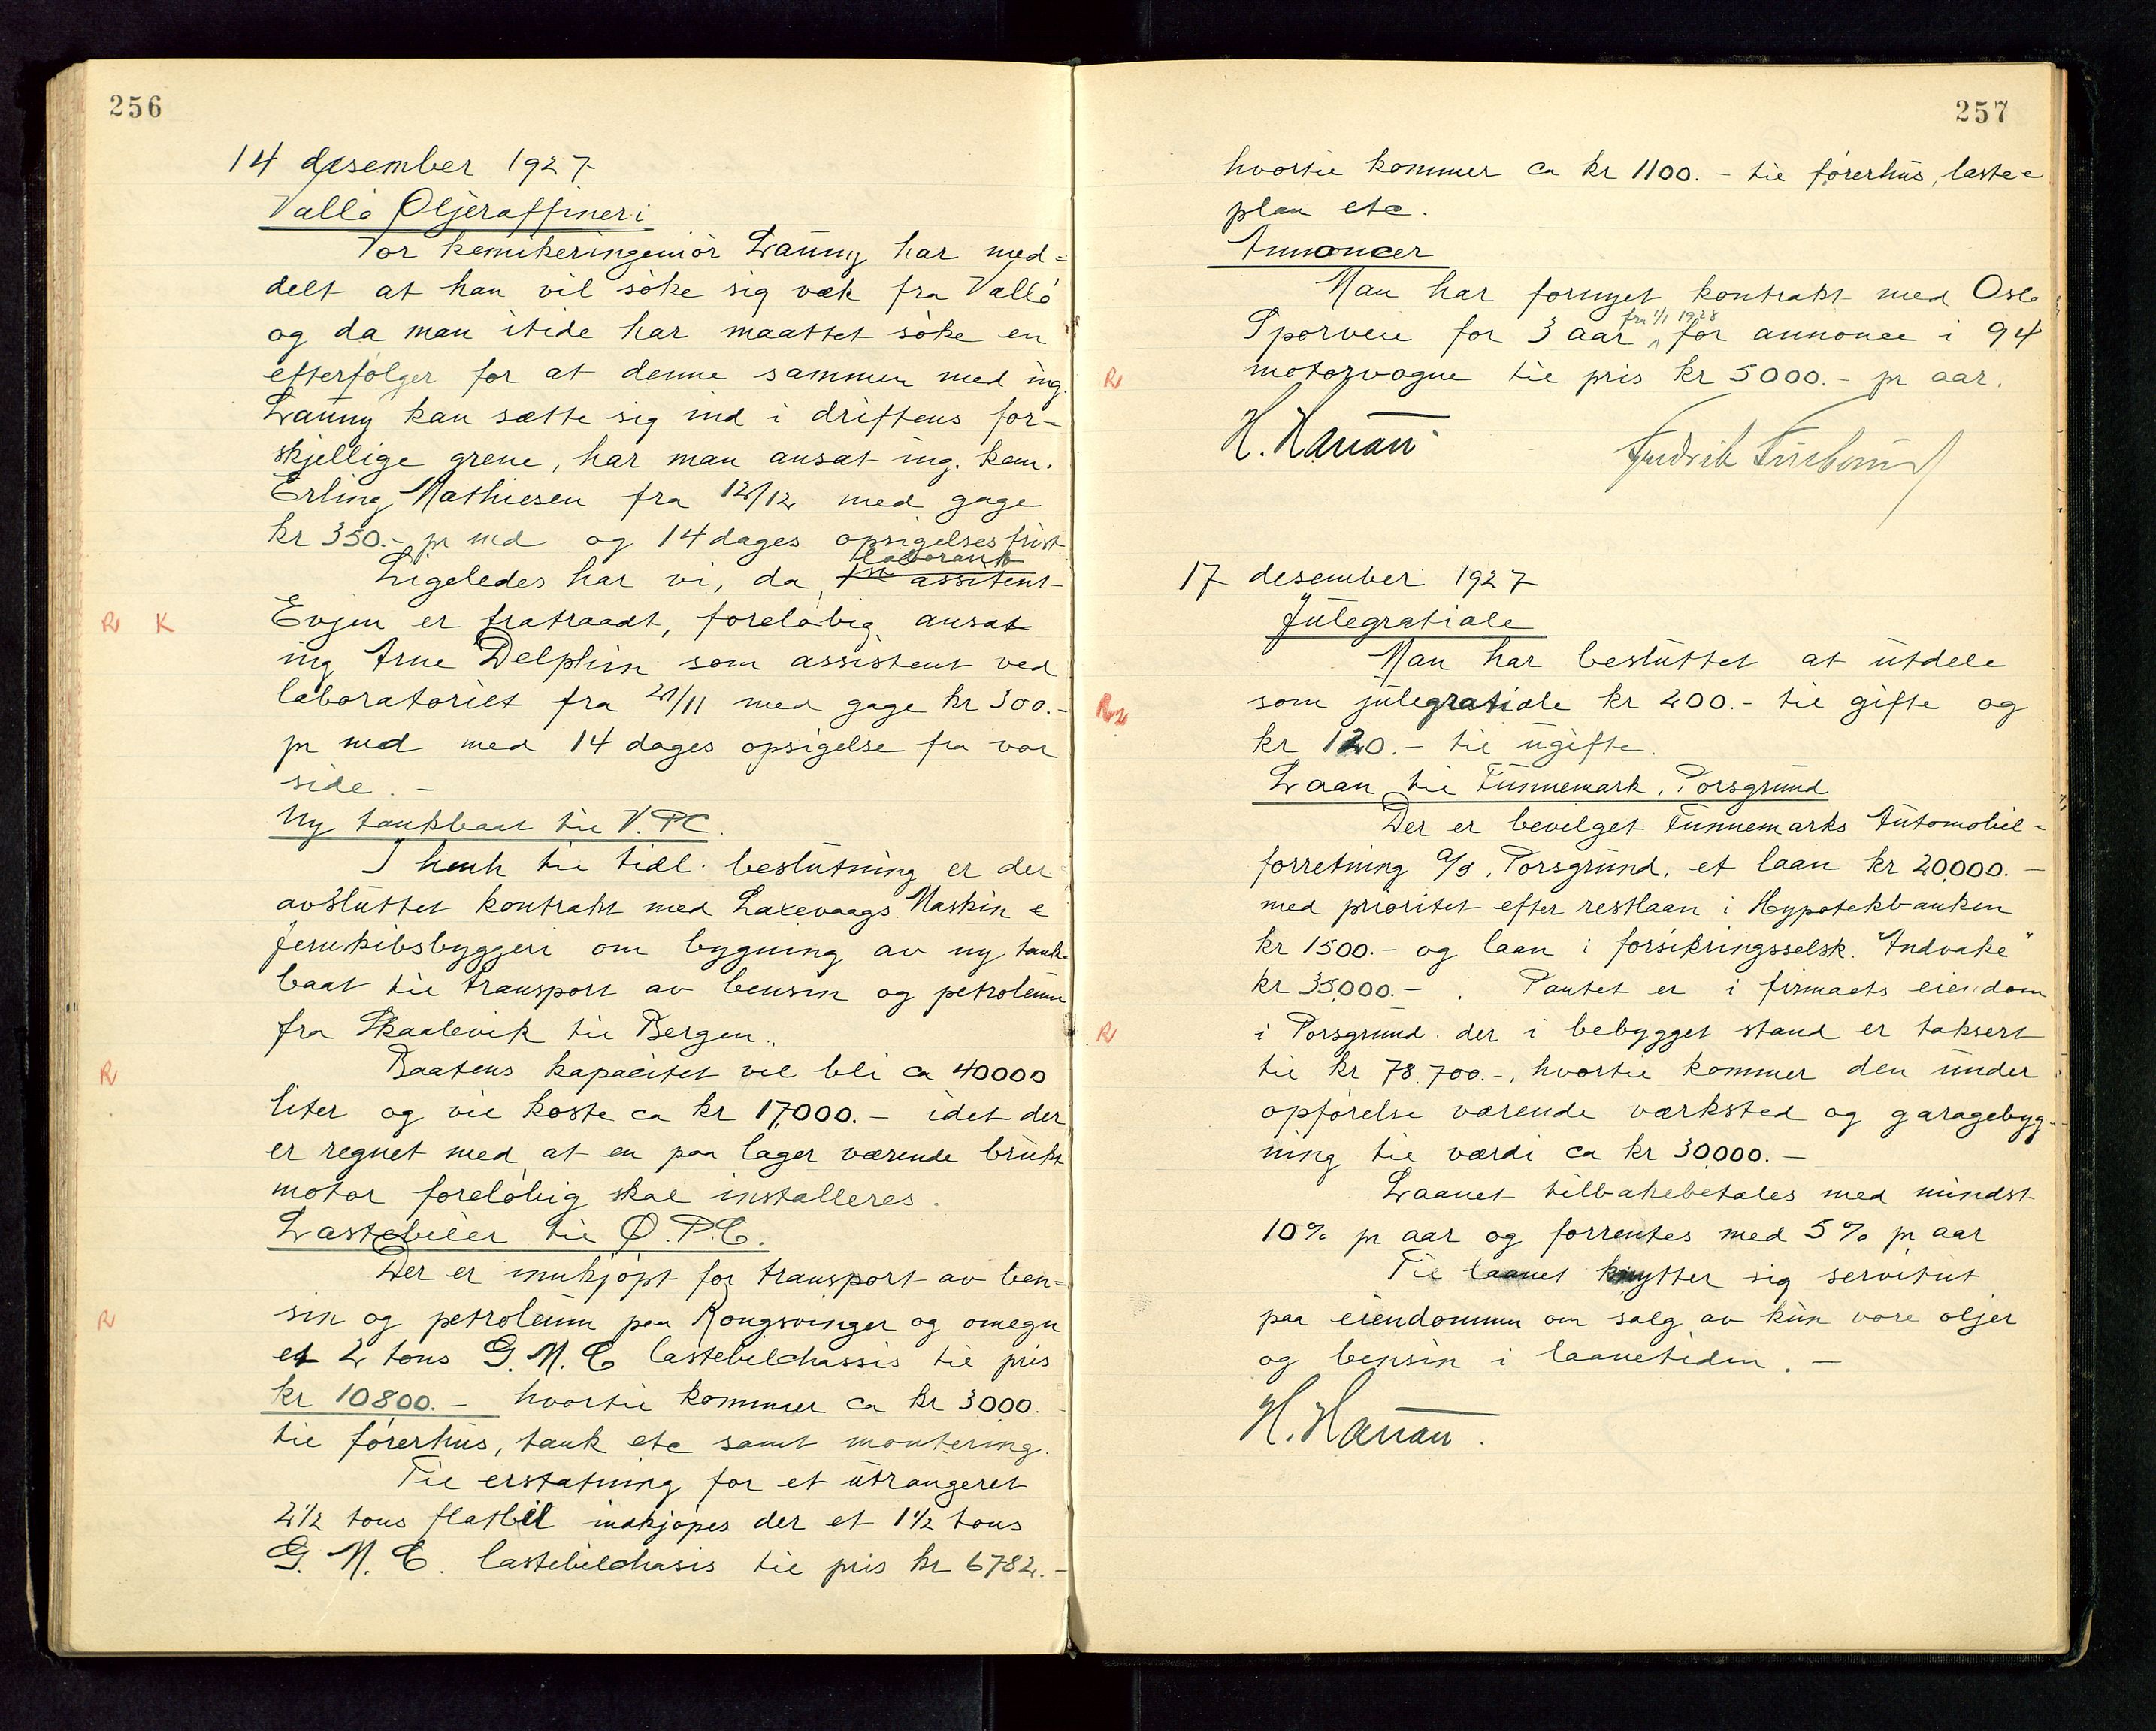 256
14 desember 1927
Vallö Oljeraffineri
Vor kemikeringeniör Launy har med=
delt at han vil söke sig væk fra Vallö
og da man itide har maattet söke en
efterfölger for at denne sammen med ing.
Launy kan sætte sig ind i driftens for-
skjellige grene, har man ansat ing. kem.
Erling Mathiesen fra 12/12 med gage
kr 350.- pr md og 14 dages opsigelsesfrist
laborant
Ligeledes har vi, da, 1ste assitent
R K Evjen er fratraadt, forelöbig ansat
ing Arne Delphin som assistent ved
laboratoriet fra 21/11 med gage kr 300.-
pr md med 14 dages opsigelse fra vor
side. -
Ny tankbaat til V.P.C.
I henh til tidl. beslutning er der
avsluttet kontrakt med Laxevaags Maskin &
Jernskibsbyggeri om bygning av ny tank-
baat til transport av bensin og petroleum
fra Skaalevik til Bergen..
R Baatens kapacitet vil bli ca 40000
liter og vil koste ca kr 17,000.- idet der
er regnet med at en paa lager værende brukt
motor forelöbig skal installeres.
Lastebiler til Ø.P.C.
Der er innkjöpt for transport av ben=
R sin og petroleum paa Kongsvinger og omegn
et 2 tons G.M.C lastebilchassis til pris
kr 10800.- hvortil kommer ca kr 3000.
til förerhus, tank etc samt montering.
Til erstatning for et utrangeret
2 1/2 tons flatbil indkjöpes der et 1 1/2 tons
G.M.C. lastebilchasis til pris kr 6782.-
257
hvortil kommer ca kr 1100.- til förerhus, laste=
plan etc.
Annoncer
Man har fornyet kontrakt med Oslo
fra 1/1 1928
Sporveie for 3 aar for annonce i 94
R motorvogne til pris kr 5000.- pr aar.
H. Hanan
17 desember 1927
Julegratiale
Man har besluttet at utdele
R2 som julegratiale kr 200.- til gifte og
kr 120.- til ugifte.
Laan til Funnemark, Porsgrund
Der er bevilget Funnemarks Automobil-
forretning A/S, Porsgrund, et laan kr 20,000.-
med prioritet efter restlaan i Hypotekbanken
kr 1500.- og laan i forsikringsselsk. "Andvake"
kr 35,000.-. Pantet er i firmaets eiendom
R i Porsgrund. der i bebygget stand er taksert
til kr 78.700.-, hvortil kommer den under
opförelse værende værksted og garagebyg-
ning til værdi ca kr 30,000.-
Laanet tilbakebetales med mindst
10% pr aar og forrentes med 5% pr aar
Til laanet knytter sig servitut
paa eiendommen om salg av kun vore oljer
og bensin i laanetiden. -
H. Hanan.